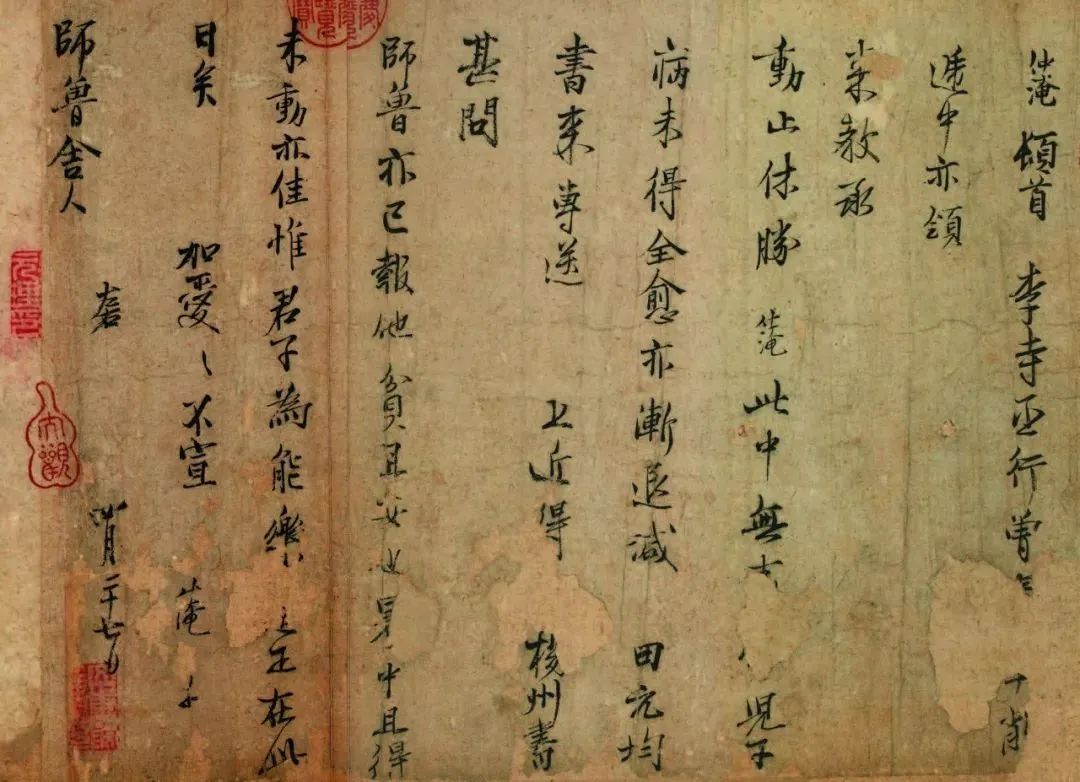 仲淹 頓首 李寺丞行曾 十削
遞中亦領
来教承
動止休勝 仲淹 此中無 児子
病未得全愈亦漸退減 田元均
書来專送 上近得 揚州書
甚問
師魯亦已報他貧且安也暑中且得
未動亦佳惟君子為能樂 正在此
日矣 加愛〻不宣 仲淹
師魯舍人 左右 四月二十七日